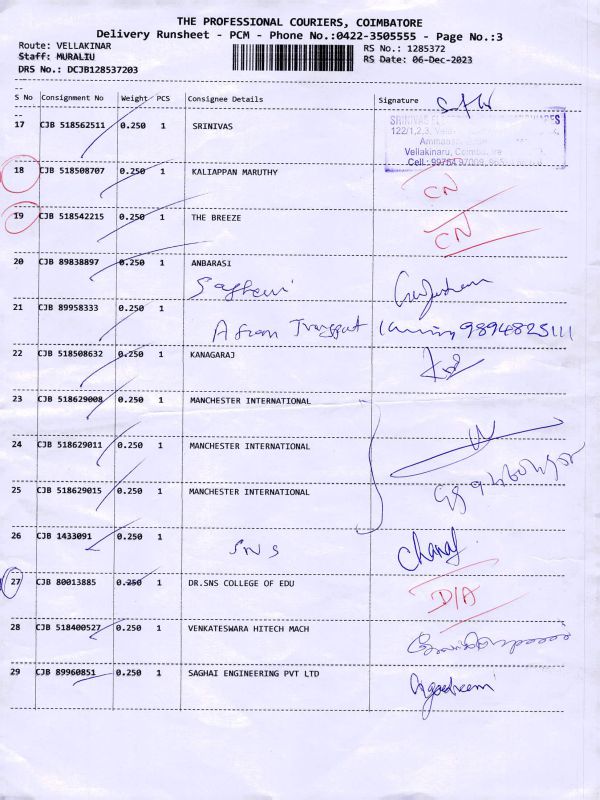 THE PROFESSIONAL COURIERS, COIMBATORE
Delivery Runsheet - PCM - Phone No.:0422-3505555 - Page No.:3
Route: VELLAKINAR
RS No.: 1285372
Staff: MURALIU
RS Date: 06-Dec-2023
DRS No.: DCJB128537203
S No Consignment No Weight PCS Consignee Details Signature
17 CJB 518562511 0.250 1 SRINIVAS
SRINIVAS
122/1,2,3,
Vellakinaru,
Cell :
18 CJB 518508707 0.250 1 KALIAPPAN MARUTHY CN
19 CJB 518542215 0.250 1 THE BREEZE CN
20 CJB 89838897 0.250 1 ANBARASI
21 CJB 89958333 0.250 1
9894825111
22 CJB 518508632 0.250 1 KANAGARAJ
23 CJB 518629008 0.250 1 MANCHESTER INTERNATIONAL
24 CJB 518629011 0.250 1 MANCHESTER INTERNATIONAL
25 CJB 518629015 0.250 1 MANCHESTER INTERNATIONAL
26 CJB 1433091 0.250 1 SNS
27 CJB 80013885 0.250 1 DR.SNS COLLEGE OF EDU D/A
28 CJB 518400527 0.250 1 VENKATESWARA HITECH MACH
29 CJB 89960851 0.250 1 SAGHAI ENGINEERING PVT LTD